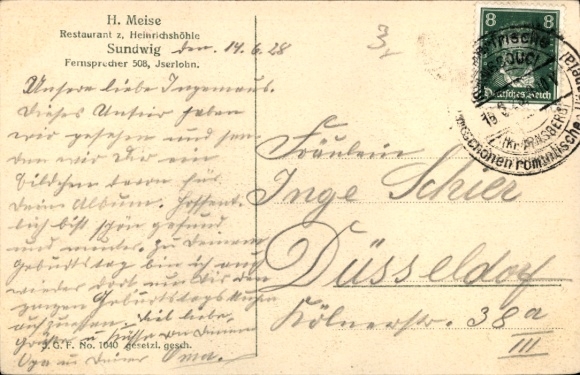 H. Meise
Restaurant z. Heinrichshöhle
Sundwig den 14.6.28
Fernsprecher 508, Jserlohn.
Unsere liebe Ingemaus.
Dieses Untier haben
wir gesehen und sen-
den wir Dir ein
Bildchen davon für
Dein Album. Hoffent-
lich bist schön gesund
und munter. Zu Deinem
Geburtstag bin ich auch
wieder dort um Dir den
ganzen Geburtstagskuchen
aufzuessen. Viel liebe
Grüße u Küsse von Deinem
Opa u Deiner Oma.
J. G. F. No. 1040 gesetzl. gesch.
3,
8 8
Deutsches Reich
(Kr. ARNSBERG)
schönen romantischen
Fräulein
Inge Schier
Düsseldorf
Kölnerstr. 38a
III